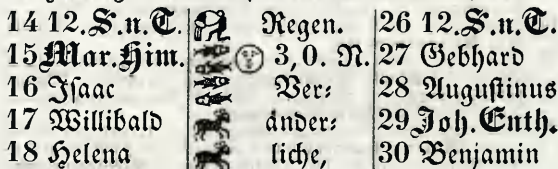 14 12.S.n.T. Regen. 26 12.S.n.T.
15 Mar.Him. 3,0. N. 27 Gebhard
16 Isaac Ver⸗ 28 Augustinus
17 Willibald änder⸗ 29 Joh. Enth.
18 Helena liche, 30 Benjamin